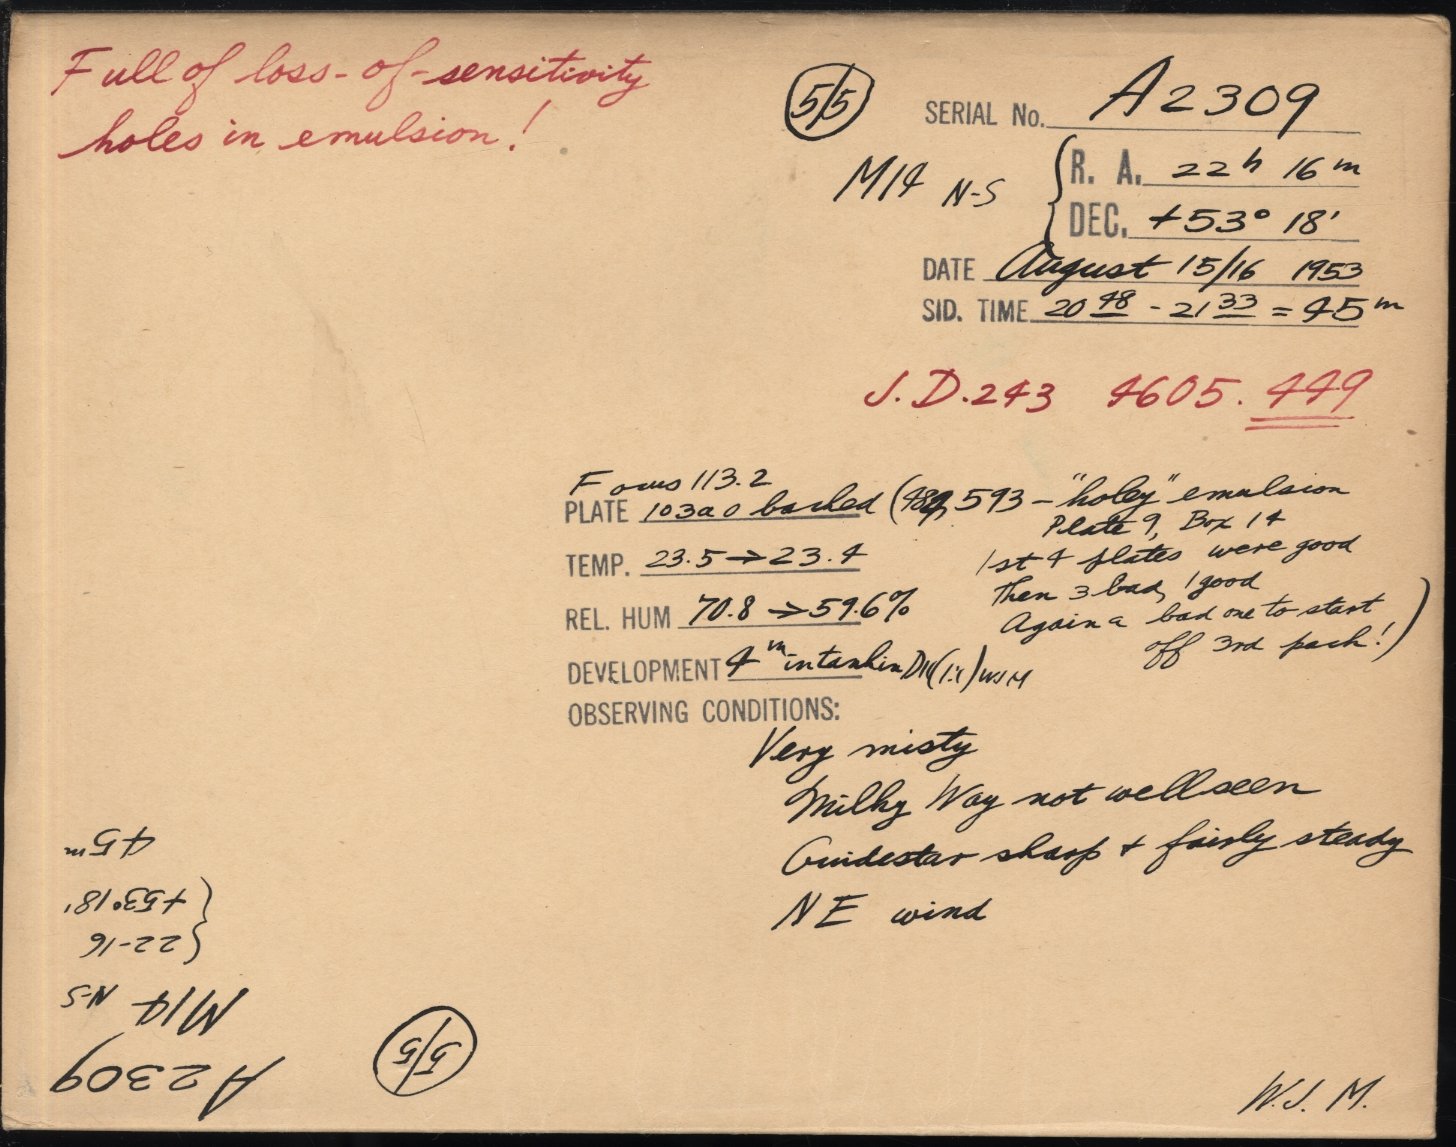 Full of loss-of-sensitivity
holes in emulsion!
5/5
SERIAL No. A2309
M14 N-S
R. A. 22h 16m
DEC. +53° 18'
DATE August 15/16 1953
SID. TIME 20 48 - 21 33 = 45m
J.D. 243 4605.449
Focus 113.2
PLATE 103a0 backed ( 593 - "holey" emulsion
Plate 9, Box 14
TEMP. 23.5 → 23.4
1st 4 plates were good
Then 3 bad, 1 good
REL. HUM 70.8 → 59.6%
Again a bad one to start
off 3rd pack!)
DEVELOPMENT 4m in tank in (1:1) WJM
OBSERVING CONDITIONS:
Very misty
Milky Way not well seen
Guidestar sharp + fairly steady
NE wind
W.J.M.
5/5
A2309
M14 N-S
22-16
+53° 18'
45m